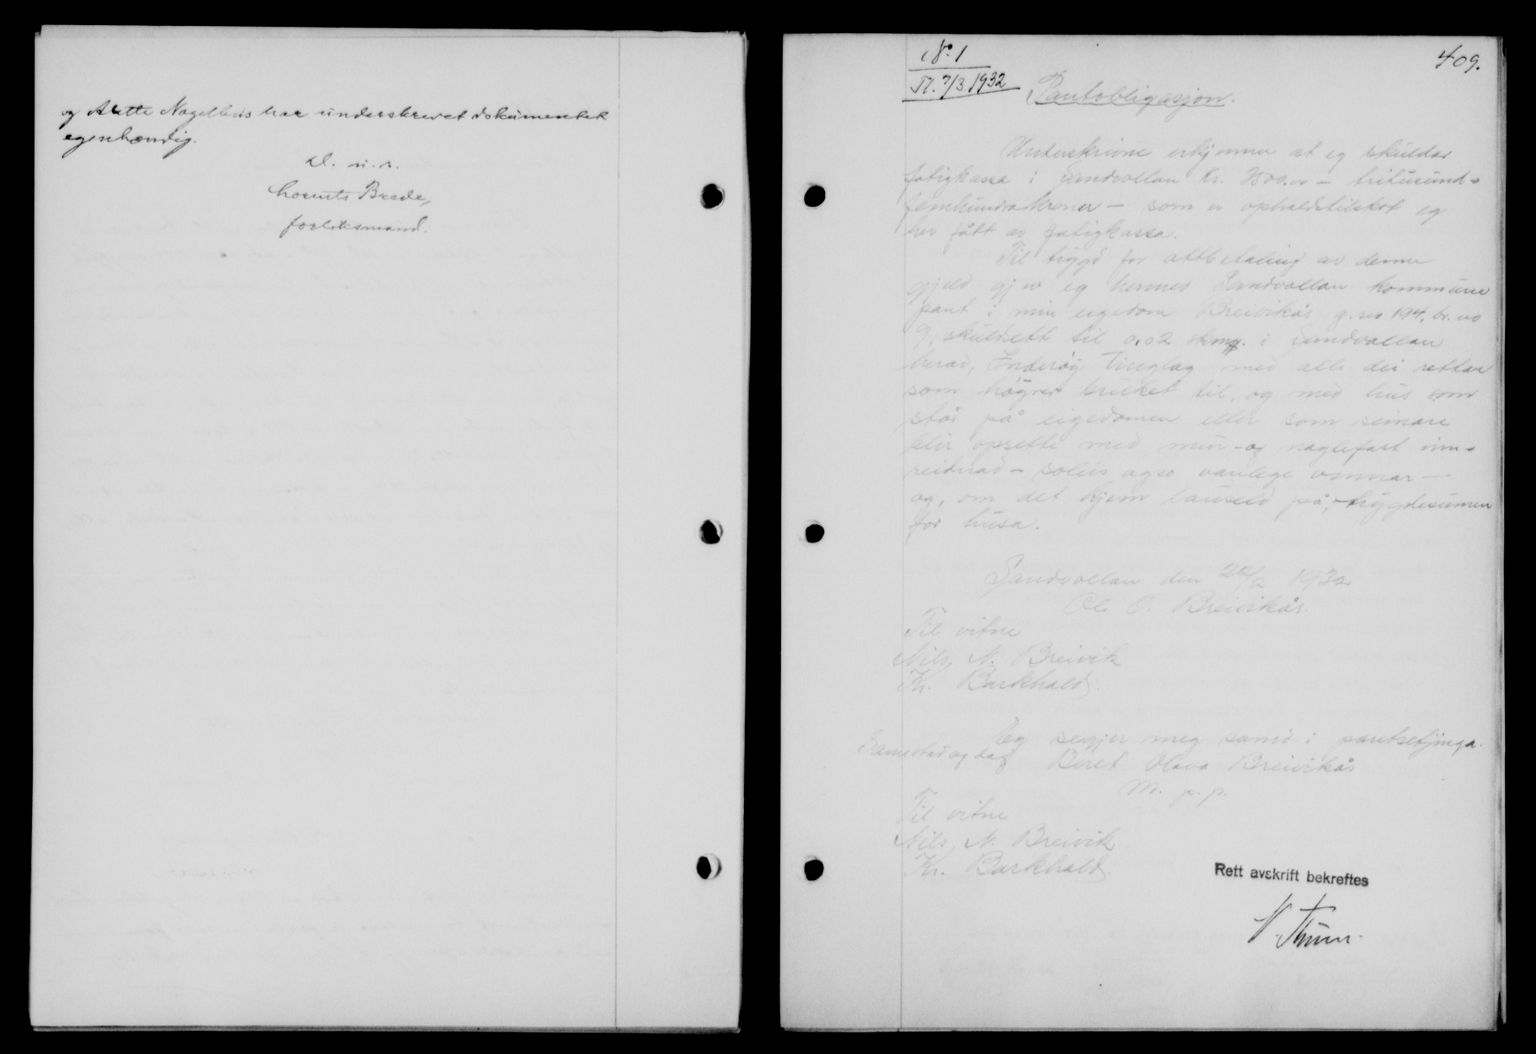 og Anette Nagelhus har underskrevet dokumentet
egenhændig.
D. u. s.
Lorents Brede,
forliksmand.
409.
No. 1
Tl. 7/3 1932
Pantobligasjon.
Underskrivne erkjenner at eg skuldar
fatigkassa i Sandvollan kr. 3500.00 – tritusund-
femhundra kroner – som er opholdstilskot eg
hev fått av fatigkassa.
Til trygd for attbetaling av denne
gjeld gjev eg hermed Sandvollan kommune
pant i min eigedom Breivikås g.no 194, br.no
9, skuldsett til 0,02 skmg. i Sandvollan
herad, Inderøy Tinglag med alle dei rettar
som høyrer bruket til, og med hus som
står på eigedomen eller som seinare
blir opsette med mur- og naglefast inn-
reidnad – soleis ogso vanlege omnar –
og, om det kjem lauseld på, trygdesumen
for husa.
Sandvollan den 24/2 1932
Ole O. Breivikås.
Til vitne
Nils N. Breivik
Kr. Barkhald.
Eg segjer meg samd i pantsetjinga.
Samestad og dag Beret Olava Breivikås
m. p. p.
Til vitne
Nils N. Breivik
Kr. Barkhald.
Rett avskrift bekreftes